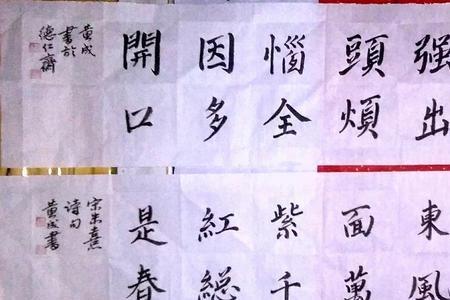 强出
頭煩
惱全
因多
開口
黄成
書於
德仁齋
東風
面萬
紫千
紅総
是春
宋朱熹
诗句
黄成書